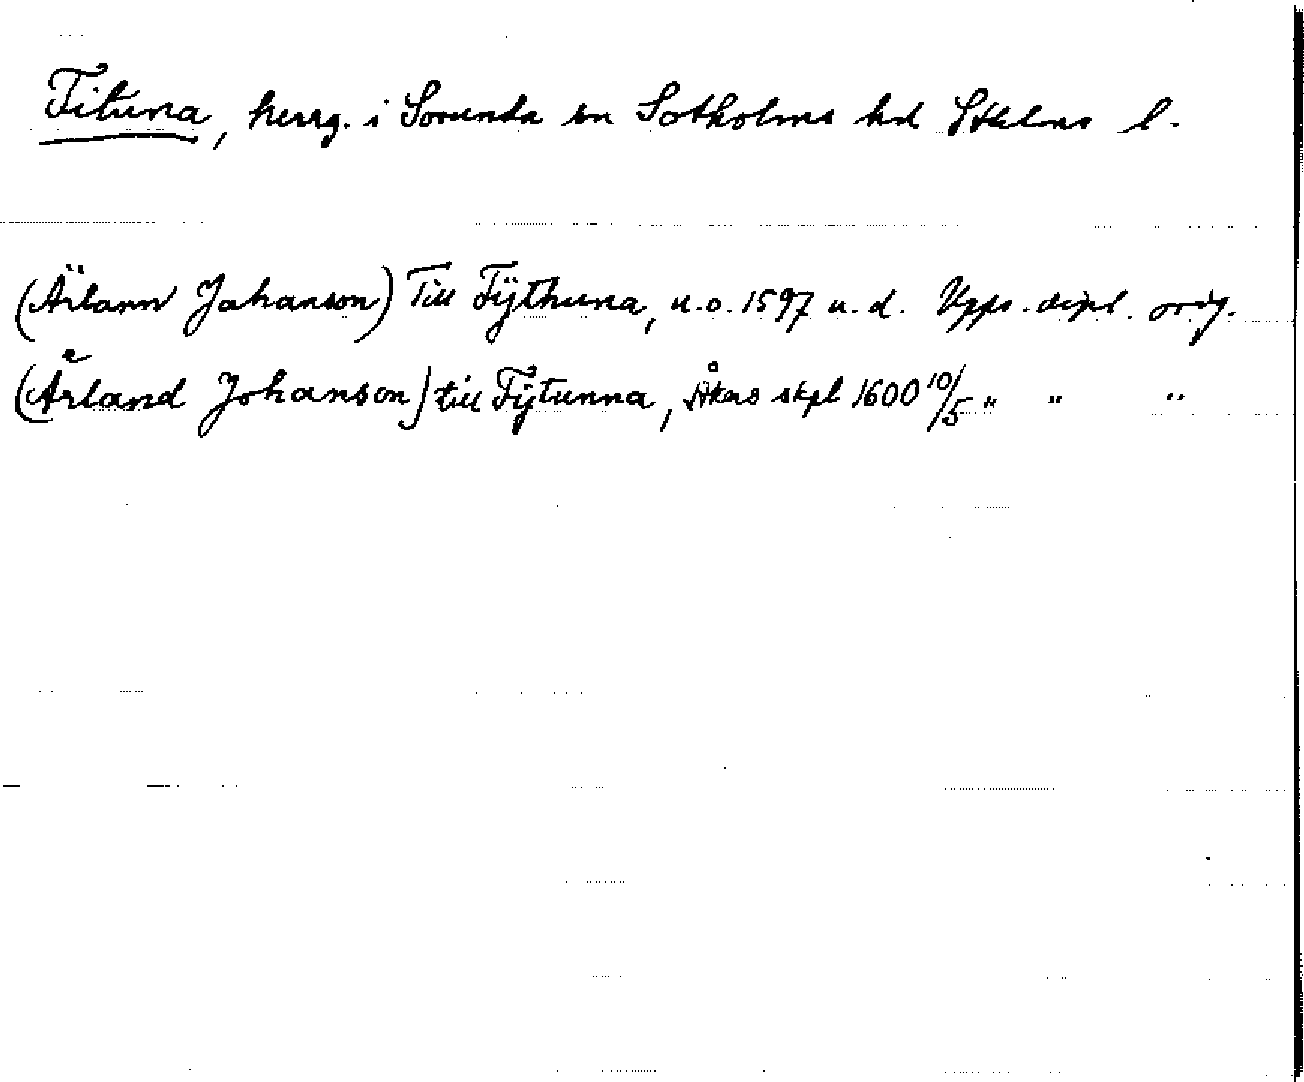 Fituna, herrg. i Sorunda sn Sotholms hd Sthlms l.
(Ärlann Johanson) Till Fÿthuna, u.o. 1597 u.d. Upps. dipl. orig.
(Ärland Johanson) till Fÿtunna, Åkers skpl 1600 10/5 " " "